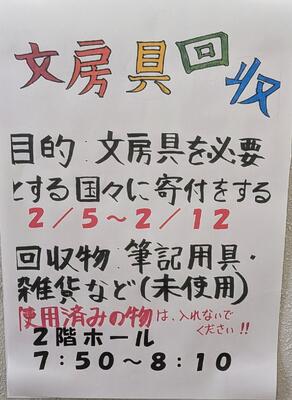 文房具回収
目的:文房具を必要
とする国々に寄付をする
2/5～2/12
回収物:筆記用具・
雑貨など(未使用)
使用済みの物は、入れないで
ください!!
2階ホール
7:50～8:10